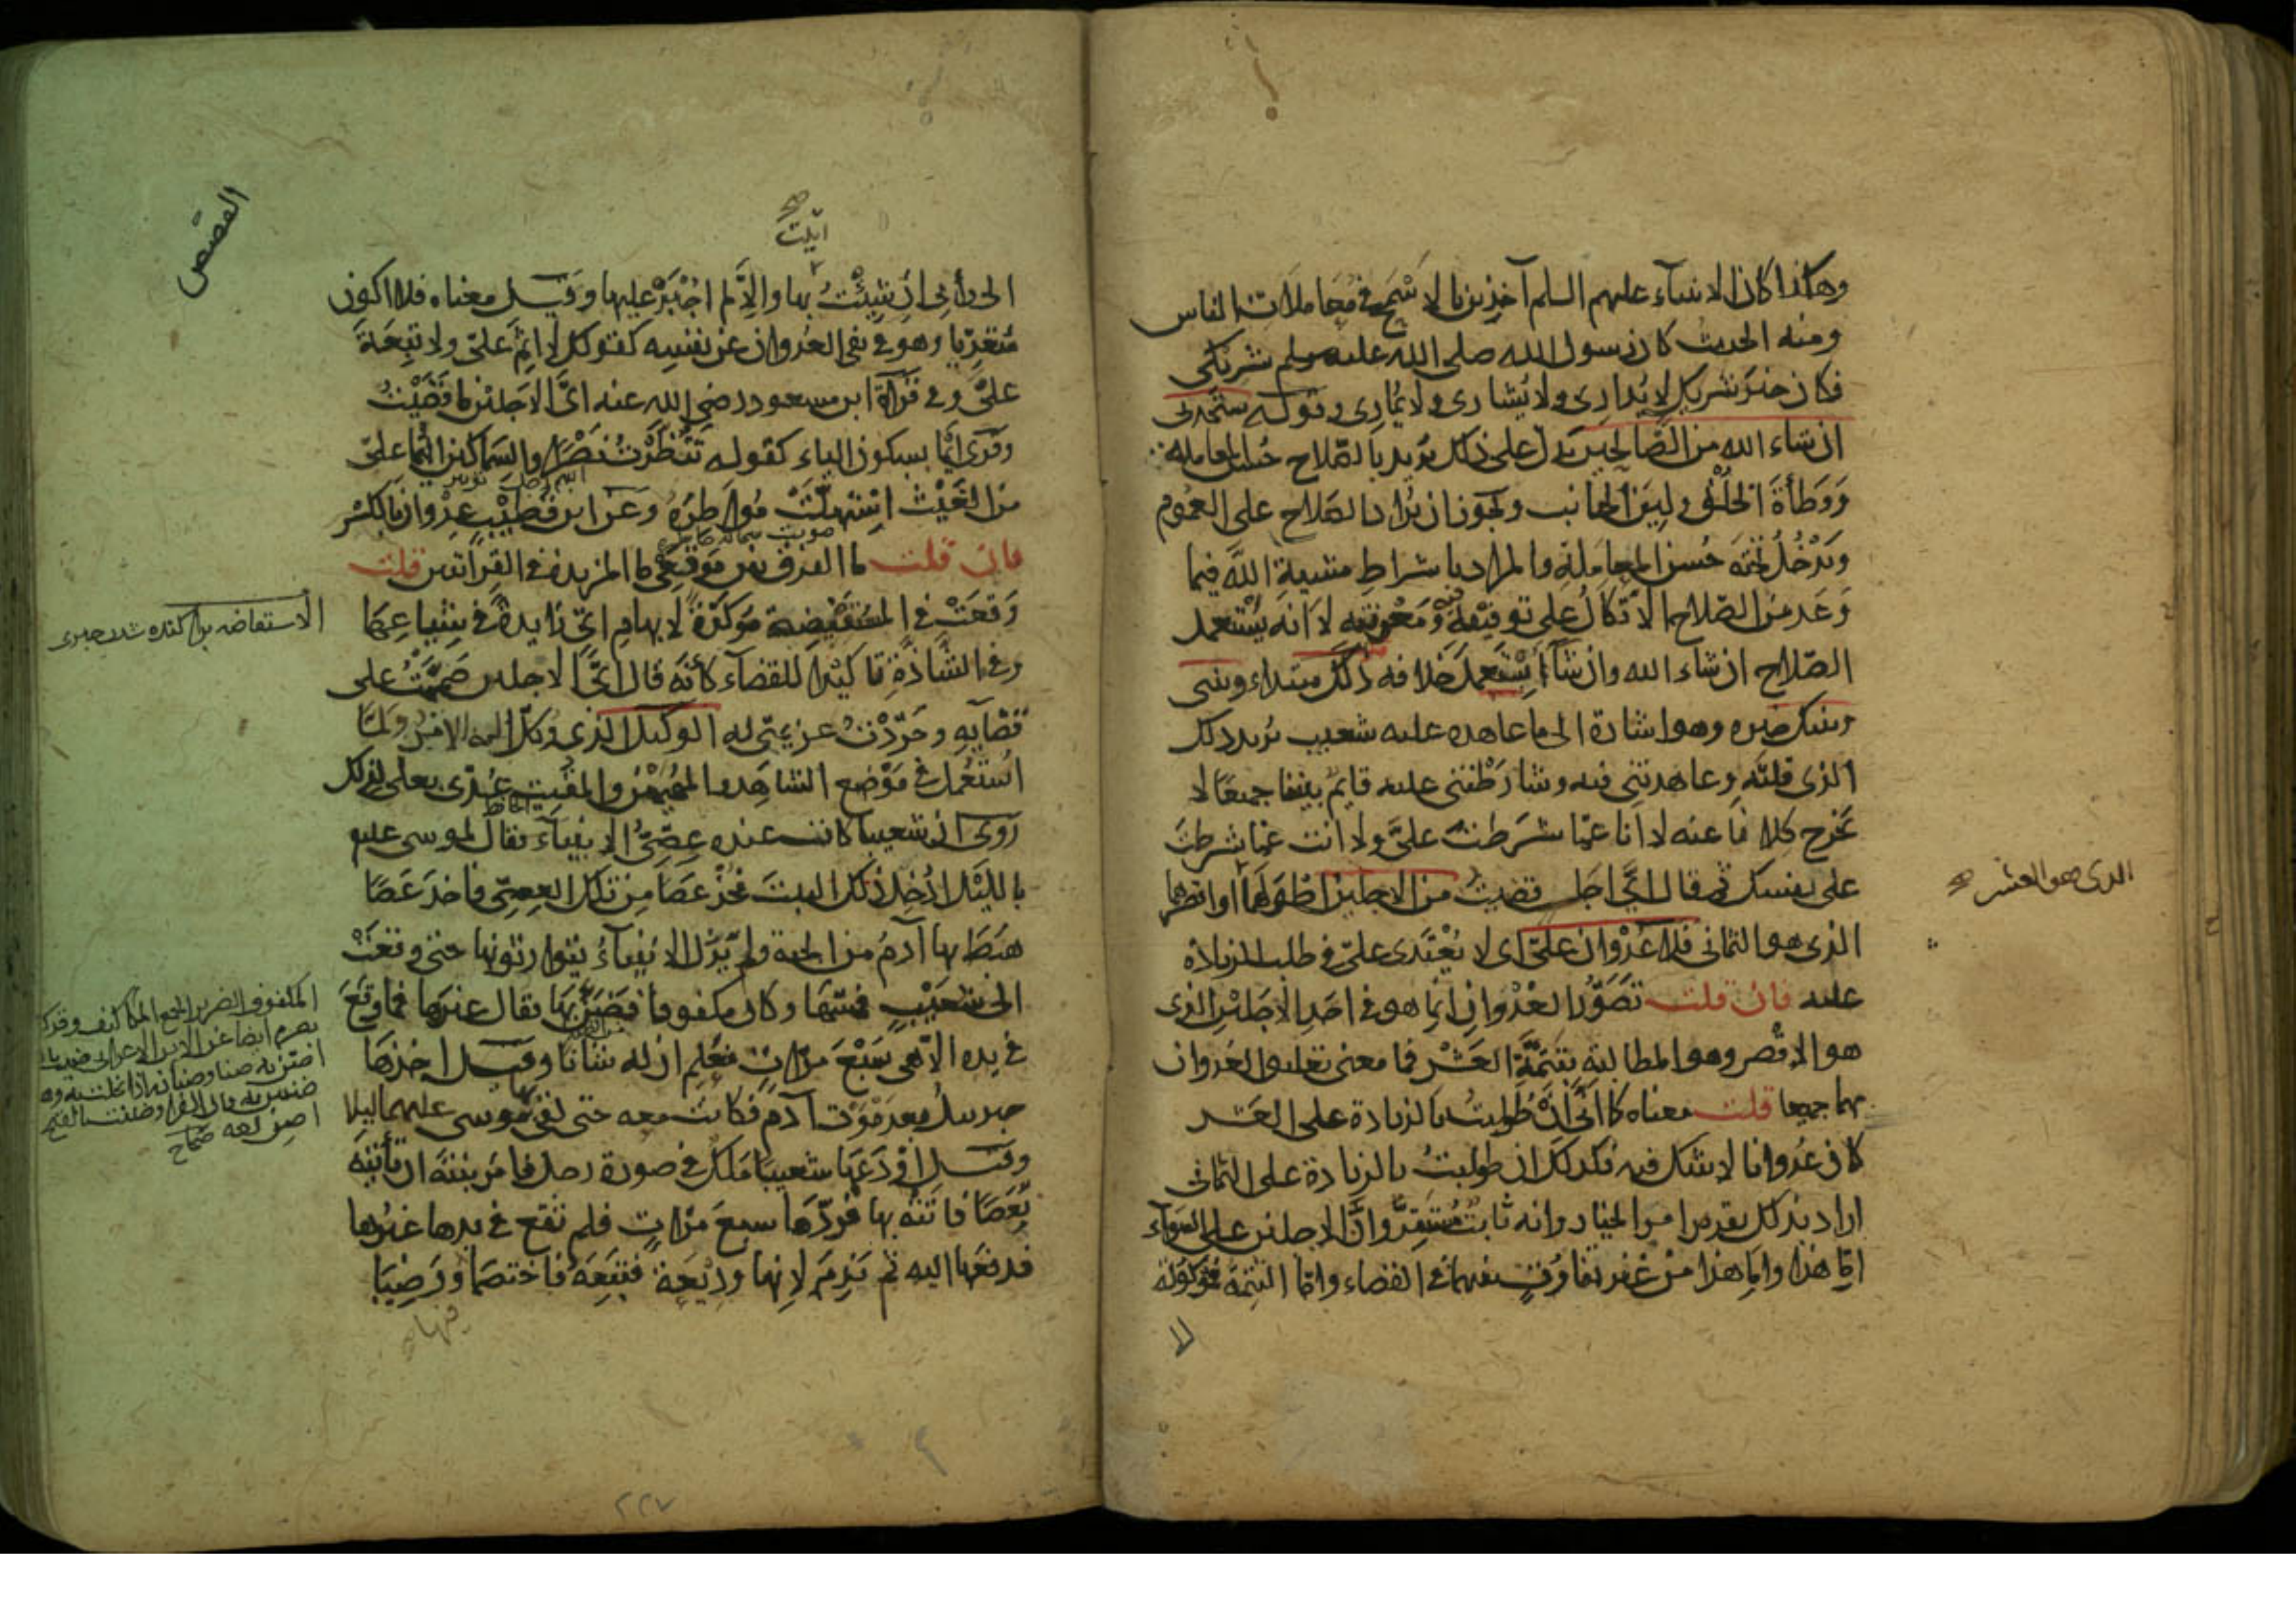 وهكذا كان الانبياء عليهم السلم آخذين بالاسمح في معاملات الناس
ومنه الحديث كان رسول الله صلى الله عليه وسلم شريكى
فكان خير شريك لا يدارى ولا يشارى ولا يمارى وقوله ستجدنى
ان شاء الله من الصالحين يدل على ذلك يريد بالصلاح حسن المعاملة
ووطأة الخلق ولين الجانب ويجوز ان يراد بالصلاح على العموم
ويدخل تحته حسن المعاملة والمراد باشتراط مشيية الله فيما
وعد من الصلاح الاتكال على توفيقه فيه ومعونته لا انه يستعمل
الصلاح ان شاء الله وان شاء استعمل خلافه ذلك مبتداء وبينى
وبينك خبره وهو اشارة الى ما عاهده عليه شعيب يريد ذلك
الذى قلته وعاهدتنى فيه وشارطتنى عليه قايم بيننا جميعا لا
يخرج كلانا عنه لا انا عما شرطت على ولا انت عما شرطت
على نفسك ثم قال اى اجل قضيت من الاجلين اطولهما او اقصرهما
الذى هو العشر صح
الذى هو الثمانى فلا عدوان على اى لا يعتدى على في طلب الزيادة
عليه فان قلت تصور العدوان انما هو في احد الاجلين الذى
هو الاقصر وهو المطالبة بتتمة العشر فما معنى تعليق العدوان
بهما جميعا قلت معناه كما انى ان طولبت بالزيادة على العشر
كان عدوانا لا شك فيه فكذلك ان طولبت بالزيادة على الثمانى
اراد بذلك تقرير امر الخيار وانه ثابت مستقر وان الاجلين على السواء
اما هذا واما هذا من غير تفاوت بينهما في القضاء واما التتمة فموكولة
القصص
اتيت صح
الى رأيى ان شيئت بها والا لم اجبر عليها وقيل معناه فلا اكون
متعديا وهو في نفى العدوان عن نفسه كقولك لا اثم على ولا تبعة
على وفي قراة ابن مسعود رضى الله عنه اى الاجلين ما قضيت
وقرى ايما بسكون الياء كقوله تنظرت نصرا والسماكين ايهما على
من الغيث استهلت مواطره وعن ابن قطيب عدوان بالكسر
فان قلت ما الفرق بين موقعى ما المزيدة في القراتين قلت
وقعت في المستفيضة مؤكدة لابهام اى زايدة في شياعها
وفي الشاذة تاكيدا للقضاء كأنه قال اى الاجلين صممت على
قضايه وجردت عزيمتى له الوكيل الذى وكل اليه الامر ولما
استعمل في موضع الشاهد والمهيمن والمقيت عدى بعلى لذلك
روى ان شعيبا كانت عنده عصى الانبياء فقال لموسى عليه
بالليل ادخل ذلك البيت فخذ عصا من تلك العصى فاخذ عصا
هبط بها آدم من الجنة ولم يزل الانبياء يتوارثونها حتى وقعت
الى شعيب فمسها وكان مكفوفا فضن بها فقال غيرها فما وقع
في يده الا هى سبع مرات فعلم ان له شانا وقيل اخذها
جبريل بعد موت آدم فكانت معه حتى لقى بها موسى عليهما ليلا
وقيل اودعها شعيبا ملك في صورة رجل فامر بنته ان تأتيه
بعصا فاتته بها فردها سبع مرات فلم تقع في يدها غيرها
فدفعها اليه ثم ندم لانها وديعة فتبعه فاختصما ورضيا
فيها
الاستفاضه پراكنده شدن خبرى
المكفوف الضرير والجمع المكافيف وقد كف
٢٢٧